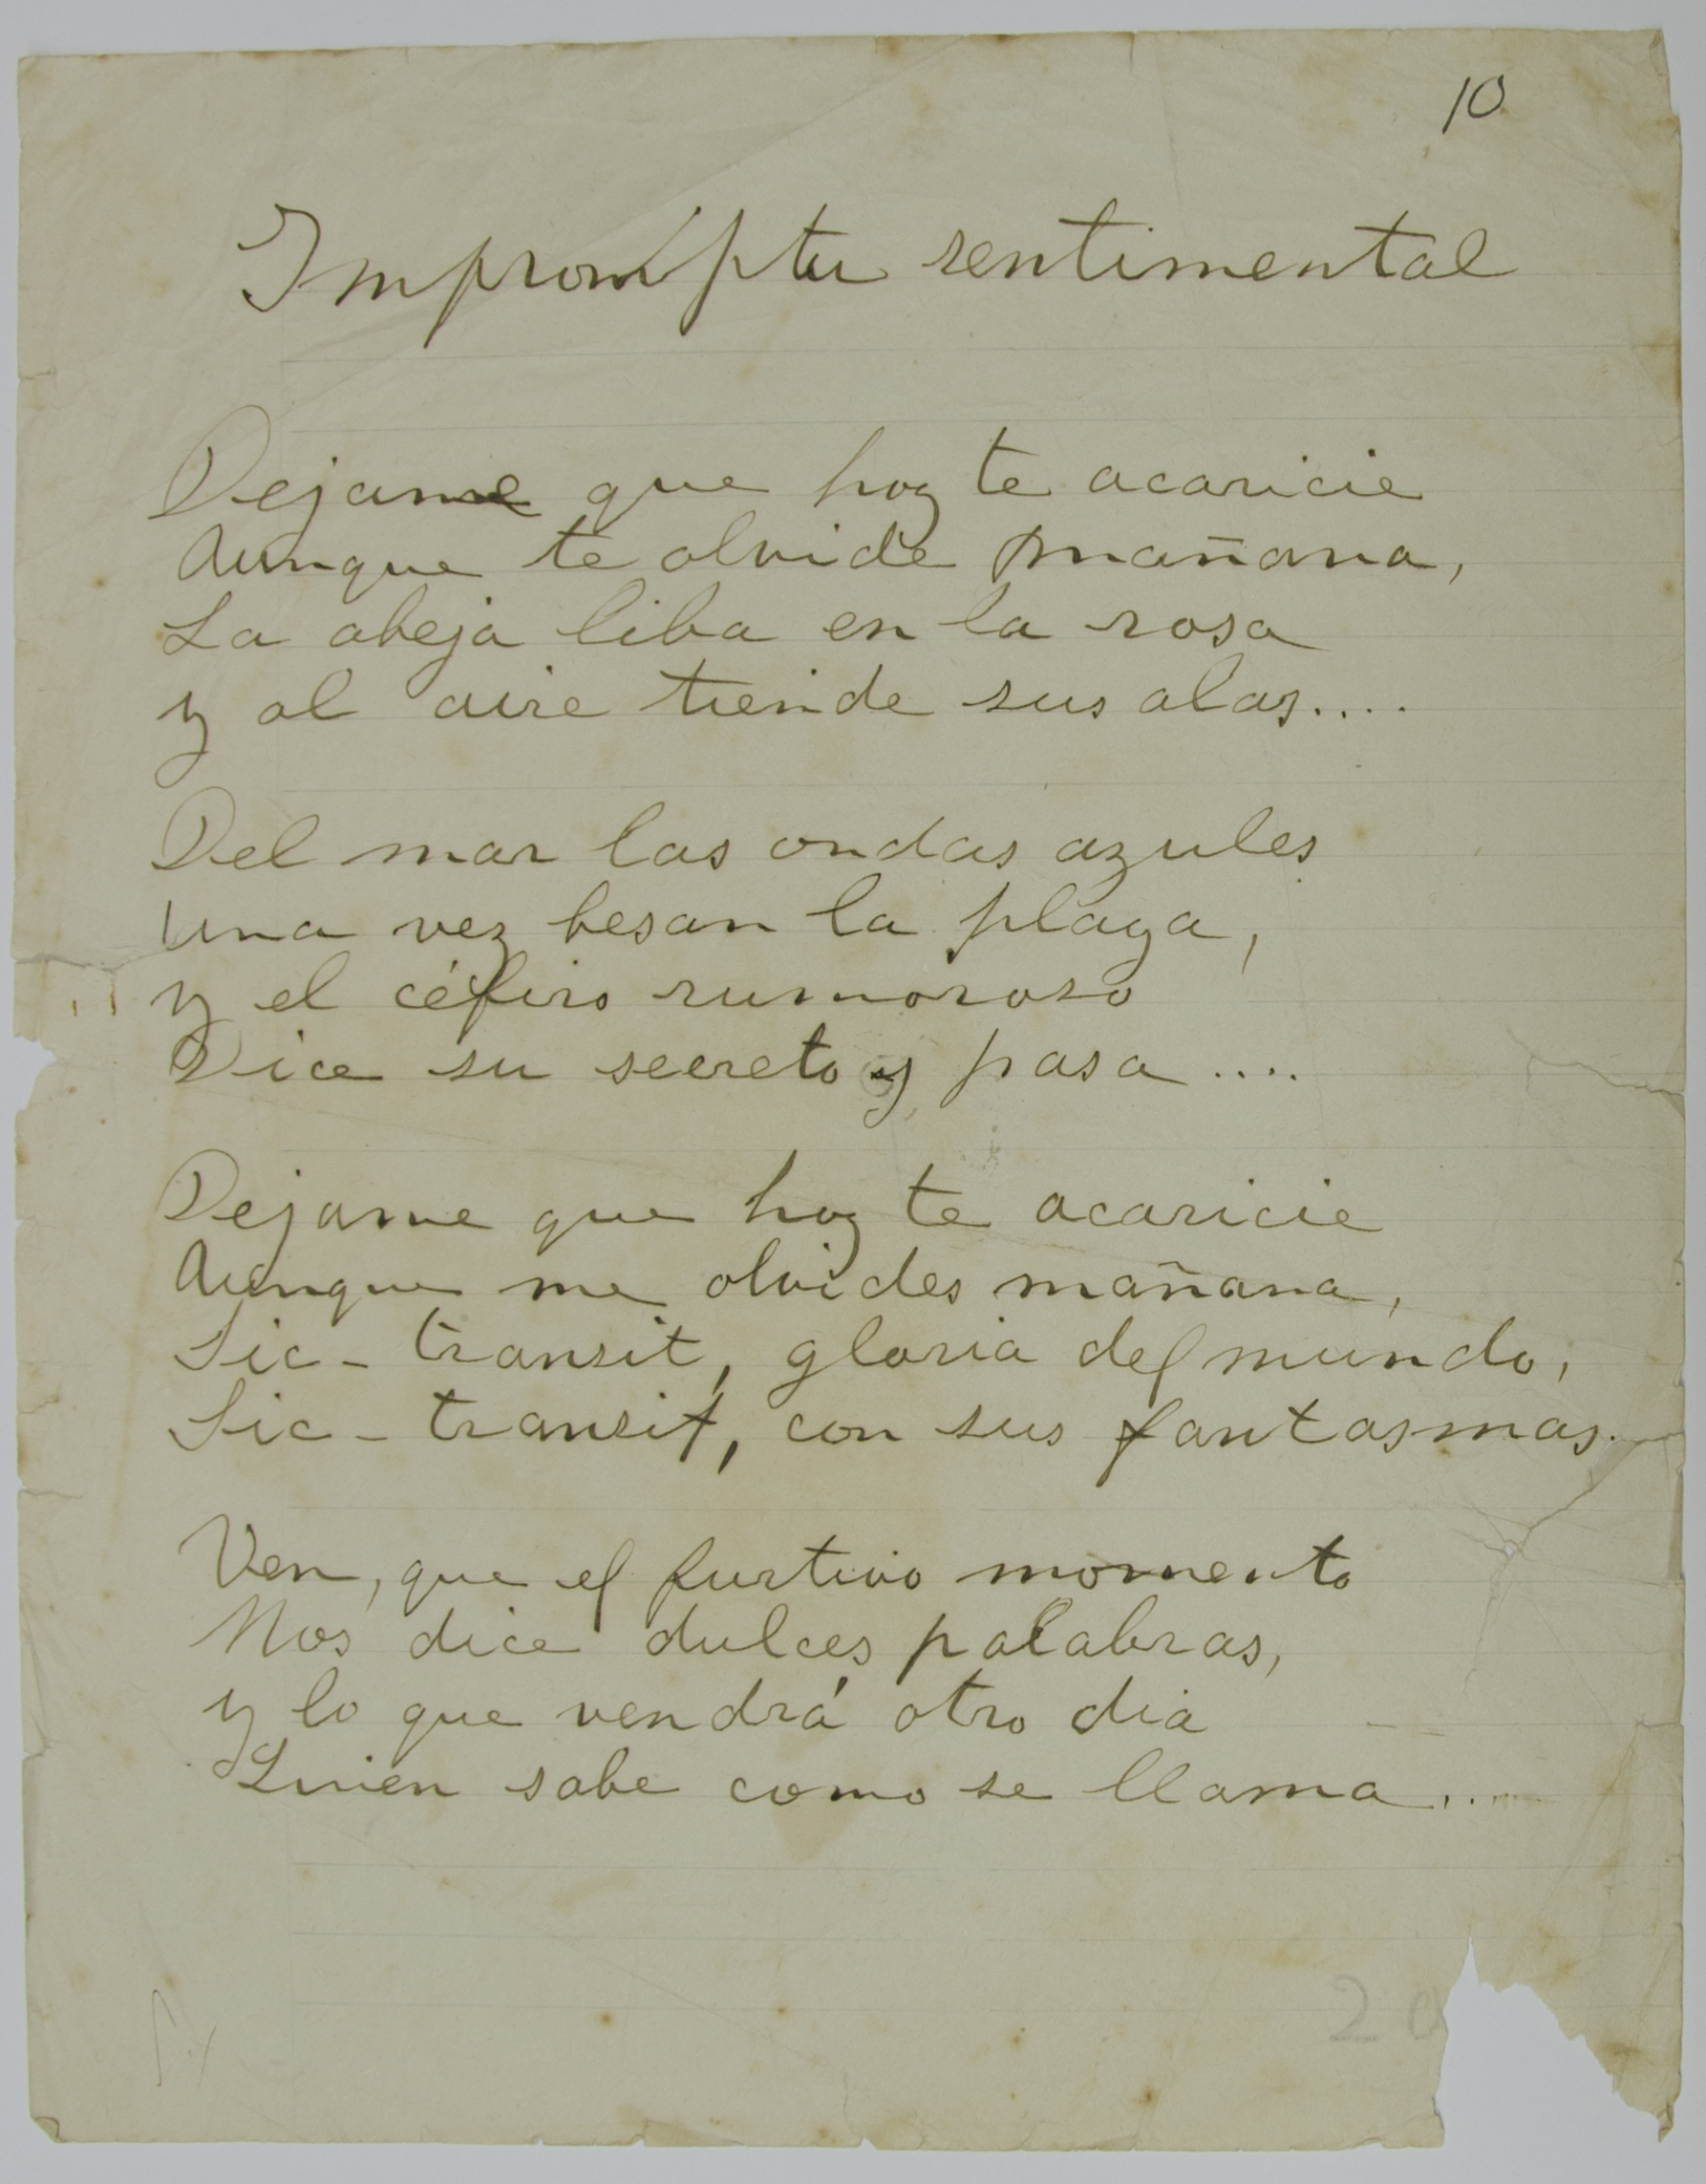 10
Impromptu sentimental
Dejame que hoy te acaricie
Aunque te olvide mañana,
La abeja liba en la rosa
y al aire tiende sus alas....
Del mar las ondas azules
Una vez besan la playa,
y el céfiro rumoroso
Dice su secreto y pasa....
Dejame que hoy te acaricie
Aunque me olvides mañana,
Sic-transit, gloria del mundo,
Sic-transit, con sus fantasmas.
Ven, que el furtivo momento
Nos dice dulces palabras,
y lo que vendrá otro dia
Quien sabe como se llama....
20